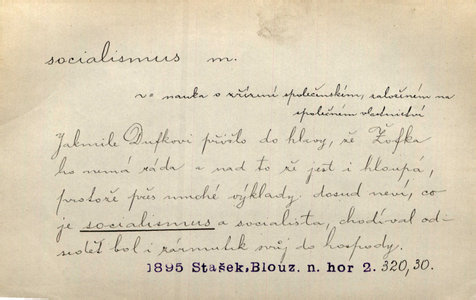 socialismus m.
nauka o zřízení společenském, založeném na
společném vlastnictví
Jakmile Dufkovi přišlo do hlavy, že Žofka
ho nemá ráda a nad to že jest i hloupá,
protože přes mnohé výklady dosud neví, co
je socialismus a socialista, chodíval od-
sedět bol i zármutek svůj do hospody.
1895 Stašek, Blouz. n. hor 2. 320,30.